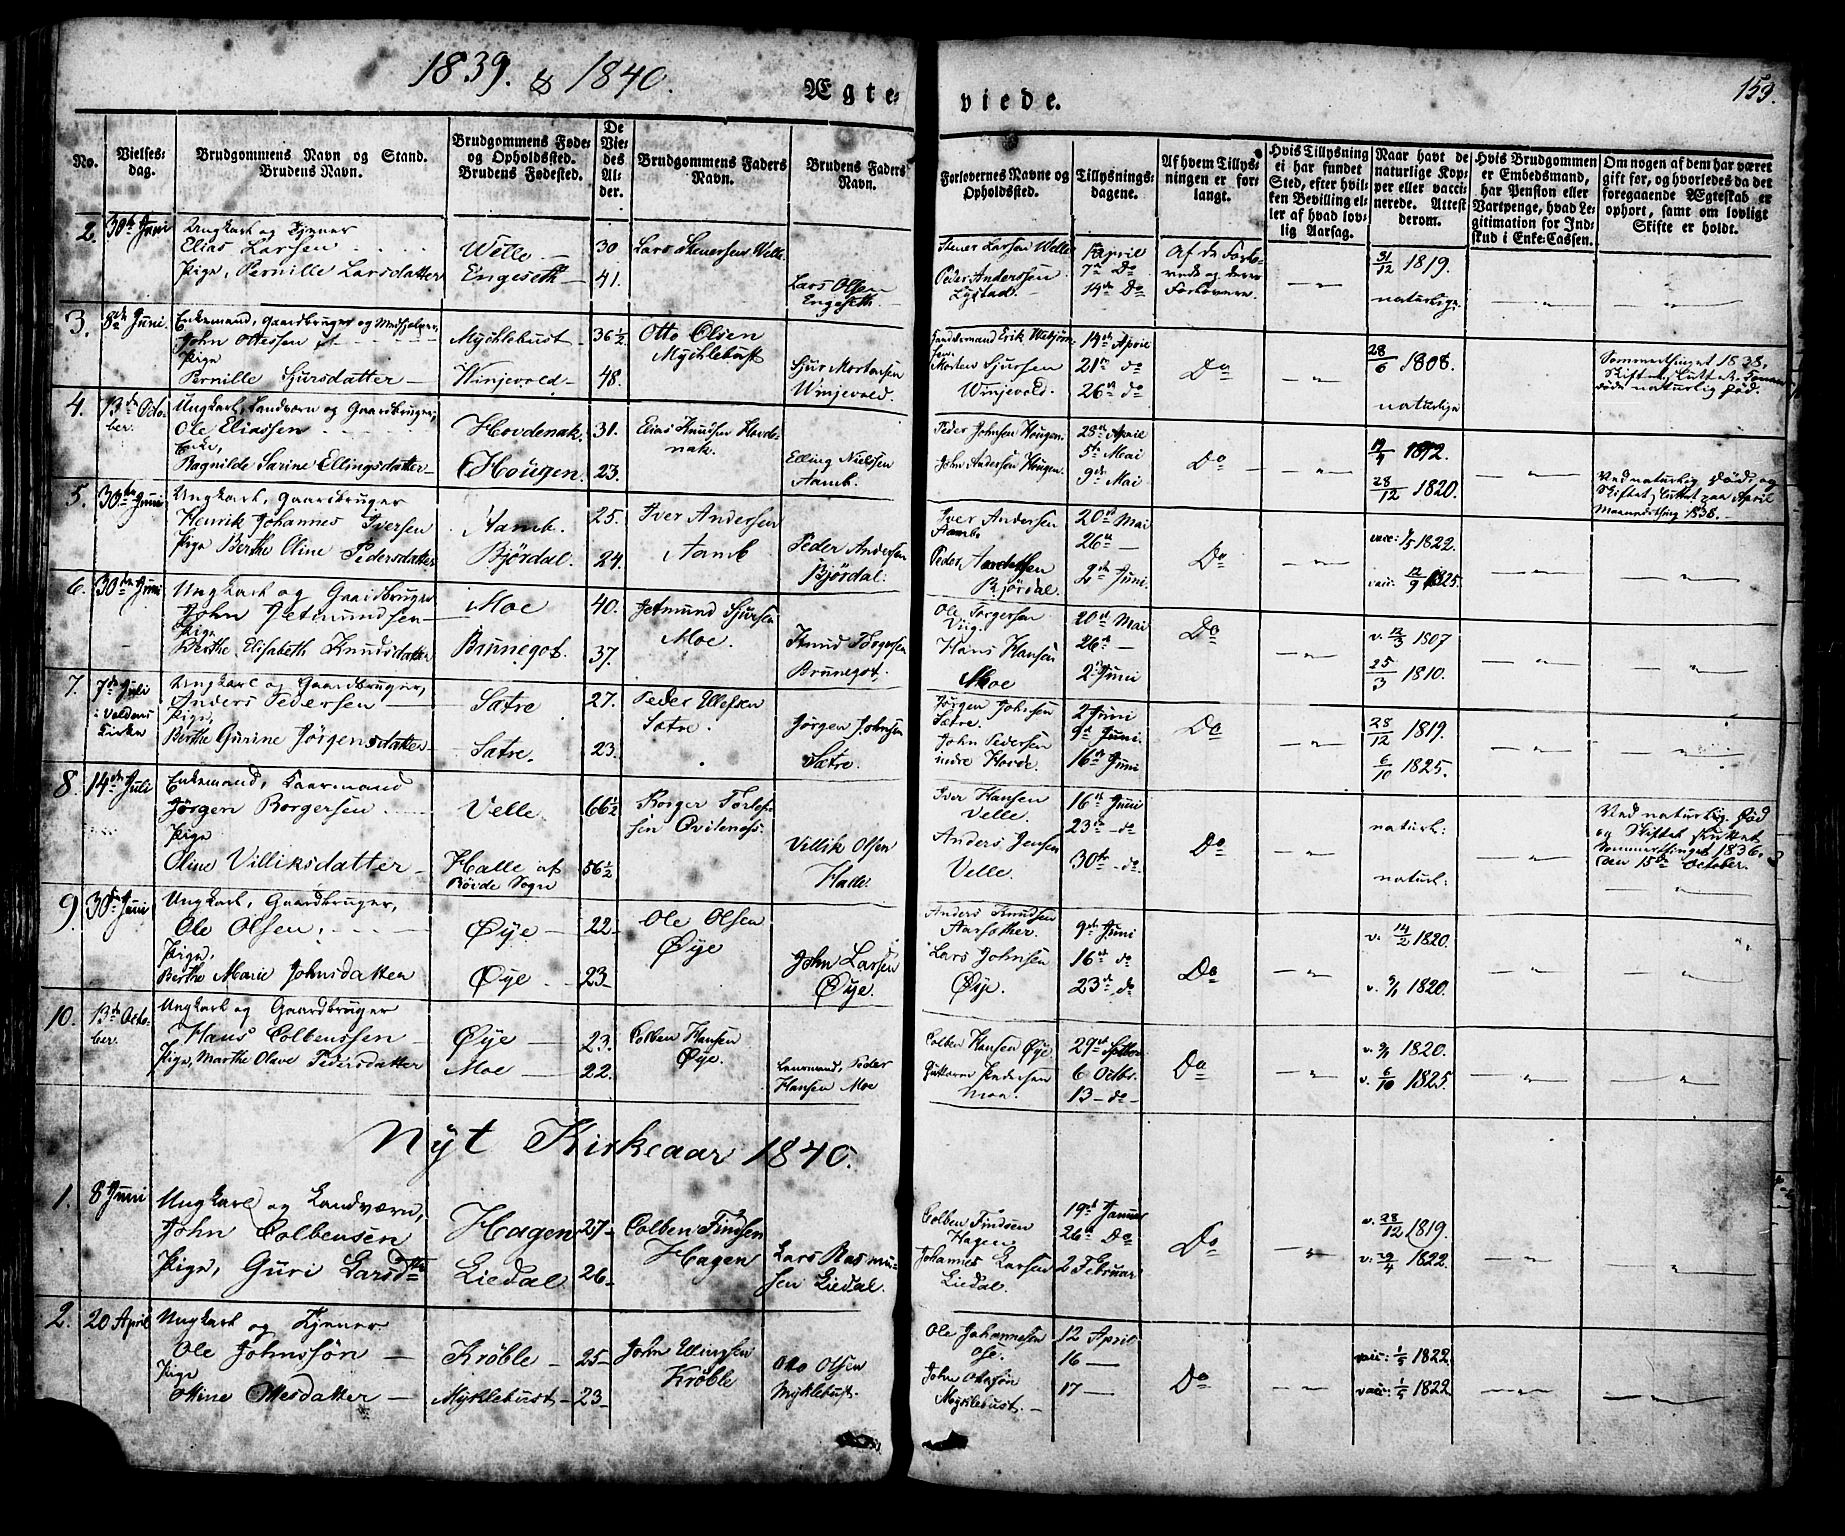 1839. & 1840.
Ægteviede.
153.
No.
Vielsesdag.
Brudgommens Navn og Stand.
Brudens Navn.
Brudgommens Føde- og Opholdssted.
Brudens Fødested.
De Viedes Alder.
Brudgommens Faders Navn.
Brudens Faders Navn.
Forlovernes Navne og Opholdssted.
Tillysningsdagene.
Af hvem Tillysningen er forlangt.
Hvis Tillysning ei har fundet Sted, efter hvilken Bevilling eller af hvad lovlig Aarsag.
Naar havt de naturlige Kopper eller vaccinerede. Attest derom.
Hvis Brudgommen er Embedsmand, har Pension eller Vartpenge, hvad Legitimation for Indskud i Enke-Cassen.
Om nogen af dem har været gift før, og hvorledes da det foregaaende Ægteskab er ophørt, samt om lovligt Skifte er holdt.
2. 30te Juni
Ungkarl og Tjener
Elias Larsen
Pige, Pernille Larsdatter
Welle
Engeseth
30
41.
Lars Stenersen Welle
Lars Olsen
Engeseth
Stener Larsen Welle
Peder Anderssen
Lystad.
April
7de Do
14de Do
Af de Forlovede og deres
Forlovere.
31/12 1819.
naturlige
3. Juni.
Enkemand, Gaardbruger og Medhjelper
John Ottessen
Pige
Pernille Sjursdatter
Mychlebust
Winjevold
36½
48.
Otto Olsen
Mychlebust
Sjur Mortensen
Winjevold.
Morten Sjursen
Winjevold
14de April
21de do
26de do
Do
28/6 1808.
naturlige
Sommerthinget 1838,
Skiftet sluttet.
naturlig død.
4. 13de October.
Ungkarl, Landværn og Gaardbruger,
Ole Eliassen
Enke,
Ragnilde Sarine Ellingsdatter
Hovdenak.
Hougen.
31.
23.
Elias Knudsen Hovdenak.
Elling Nielssen
Aamb.
Peder Johnsen Hougen
John Andersen Hougen.
28de April
5te Mai
9de Mai
Do
1812.
28/12 1820.
Ved naturlig Død, og
Skiftet sluttet paa April
Maanedsthing 1838.
5. 30te Juni
Ungkarl, Gaardbruger
Henrik Johannes Iversen
Pige Berthe Oline Pedersdatter
Aamb.
Bjørdal.
25.
24.
Iver Andersen
Aamb
Peder Andersen
Bjørdal.
Iver Andersen
Aamb.
Peder Andersen
Bjørdal.
20de Mai
26de
2de Juni.
Do
vacc: 1/5 1822.
vacc: 12/9 1825.
6. 30te Juni
Ungkarl og Gaardbruger
John Jetmundsen
Pige
Berthe Elisabeth Knudsdatter
Moe
Brunegot.
40.
37.
Jetmund Sjursen
Moe.
Knud Torgersen
Brunegot.
Ole Torgersen
Viig.
Hans Hansen
Moe
20de Mai
26de
2 Juni
Do
v. 12/3 1807
25/3 1810.
7. 7de Juli
i Voldens
Kirke
Ungkarl og Gaardbruger,
Anders Pedersen
Pige,
Berthe Gurine Jørgensdatter
Sætre
Sætre.
27.
23.
Peder Ellefsen
Sætre.
Jørgen Johnsen
Sætre.
Jørgen Johnsen
Sætre.
John Pedersen
indre Hovde.
2 Juni
9de Juni.
16de Juni
Do
28/12 1819.
6/10 1825.
8. 14de Juli
Enkemand, Kaarmand
Jørgen Borgersen
Pige
Oline Villiksdatter
Velle.
Halle af
Røvde Sogn
66½
56½
Borger
Villik Olsen
Halle.
Iver Hansen
Velle.
Anders Jensen
Velle.
16de Juni
23de do
30te do.
Do
naturl:
naturl:
Ved naturlig Død
og Skiftet sluttet
Sommerthinget 1836.
den 15de October.
9. 30te Juni
Ungkarl, Gaardbruger,
Ole Olsen,
Pige,
Berthe Marie Johnsdatter
Øye
Øye
22
23
Ole Olsen
Øye
John Larsen
Øye.
Anders Knudsen
Aarsether.
Lars Johnsen
Øye.
9de Juni
16de do
23de do
Do
v. 14/2 1820.
v. 1820.
10. 13de October.
Ungkarl og Gaardbruger
Hans Colbenssen
Pige, Marthe Olave Pedersdatter
Øye
Moe
23.
22.
Colben Hansen
Øye.
Lensmand, Peder
Hansen Moe
Colben Hansen Øye
Guttorm Pedersen
Moe.
29de Septbr.
6 Octbr.
13 do
Do
v. 1820.
v. 6/10 1825.
Nyt Kirkeaar 1840.
1. 8 Juni
Ungkarl og Landværn,
John Colbensen
Pige, Guri Larsdtr
Hagen
Liedal
27
26
Colben Findsen
Hagen
Lars Rasmussen Liedal.
Colben Findsen
Hagen
Johannes Larsen
Liedal.
19de Januar
26de Do
2 Februar
Do
v. 28/12 1819.
v. 29/4 1822.
2. 20 April
Ungkarl og Tjener
Ole Johnssøn
Pige
Ottine Ottesdatter
Krøble
Myklebust
25
23
John Ellingsen
Krøble
Otto Olsen
Myklebust.
Ole Johannesen
Ose.
John Ottesøn
Myklebust.
12 April
16
17
Do
vacc: 1/5 1822.
vacc: 1/5 1822